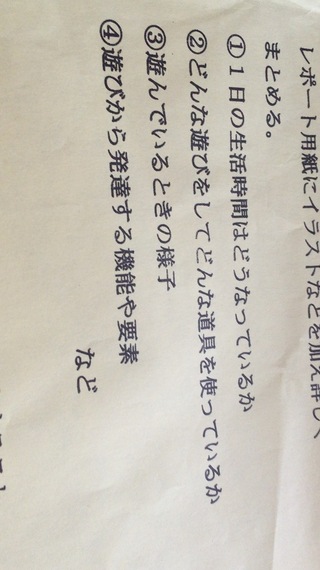 レポート用紙にイラストなどを加え詳しく
まとめる。
①1日の生活時間はどうなっているか
②どんな遊びをしてどんな道具を使っているか
③遊んでいるときの様子
④遊びから発達する機能や要素
など